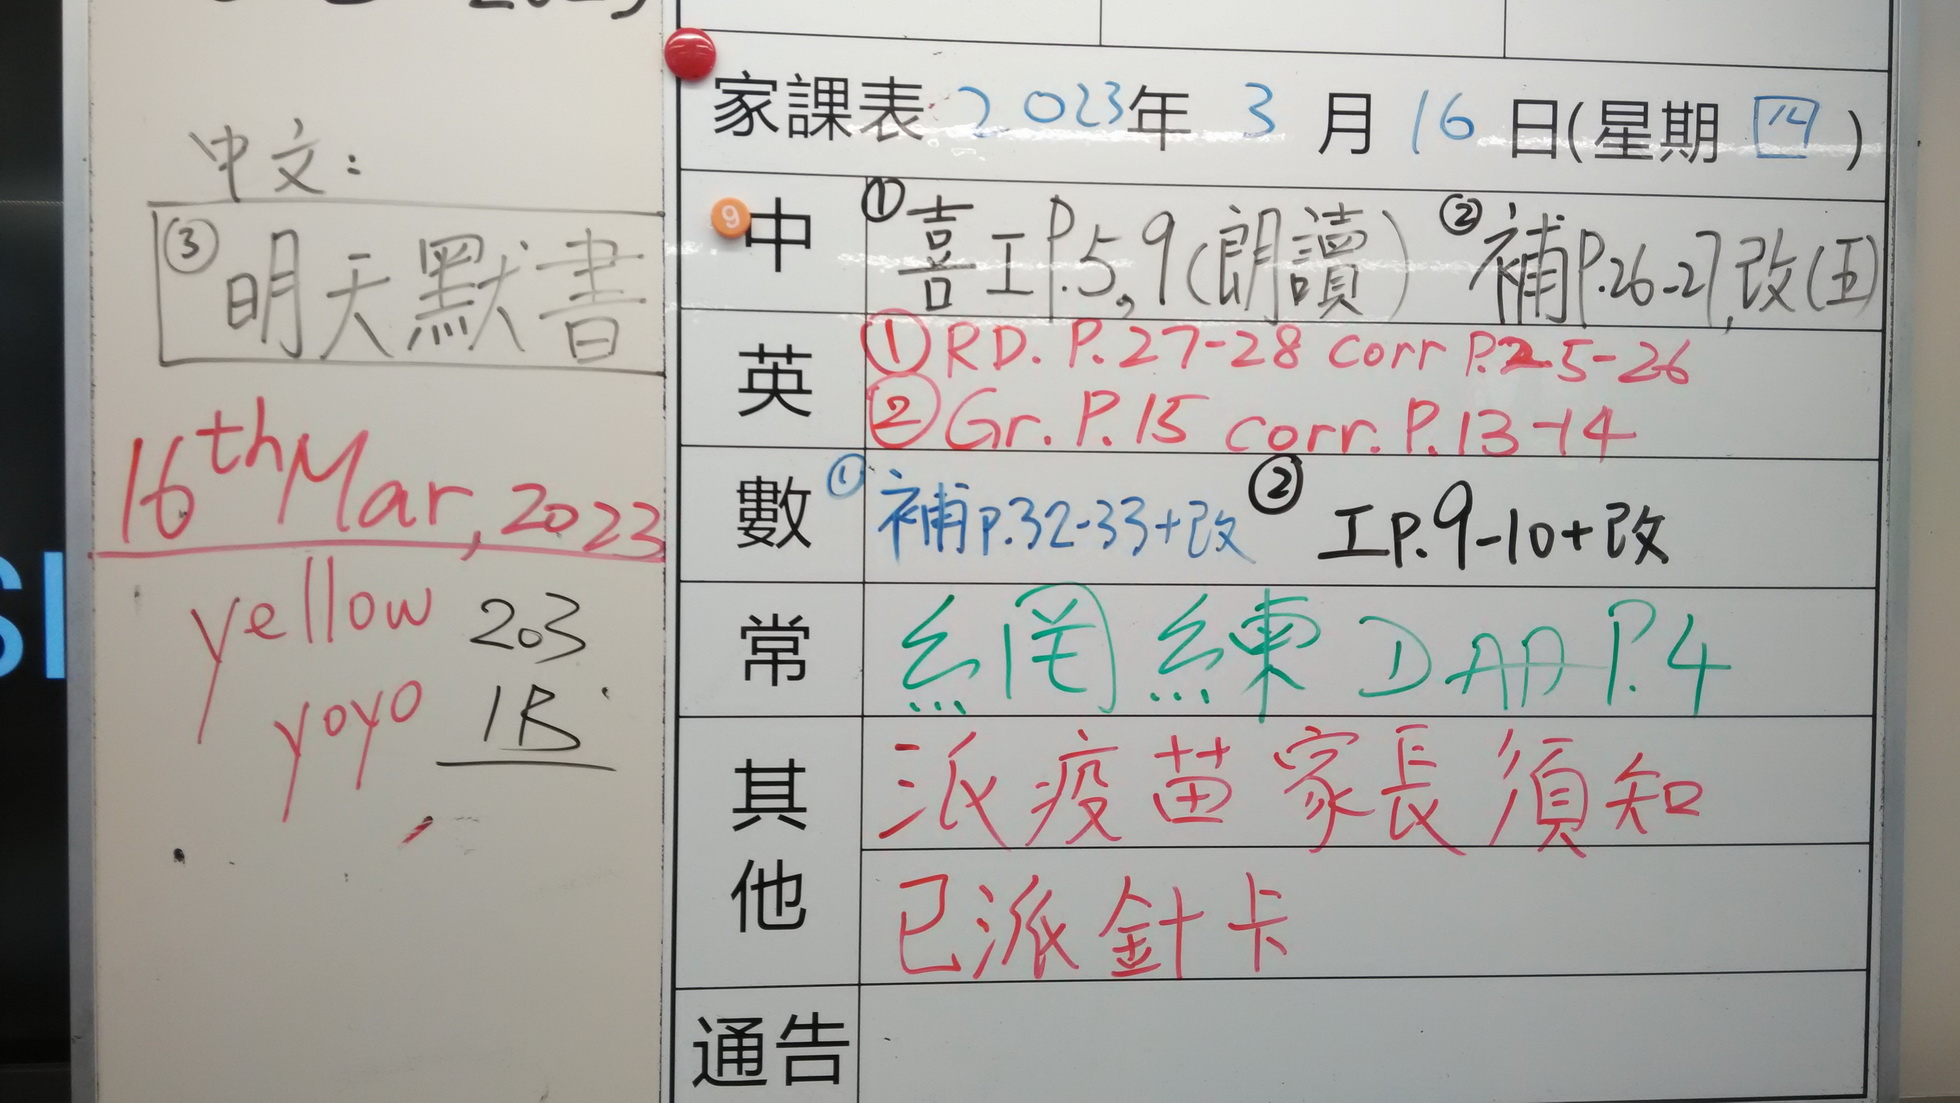 中文：
③明天默書
16th Mar, 2023
yellow 203
yoyo 1B
家課表 2023年 3 月 16 日(星期 四 )
9
中 ①喜工P.5,9(朗讀) ②補P.26-27,改(五)
英 ①RD. P.27-28 corr P.25-26
②Gr. P.15 corr. P.13-14
數 ①補p.32-33+改 ②工P.9-10+改
常 網練 P.4
其他 派疫苗家長須知
已派針卡
通告